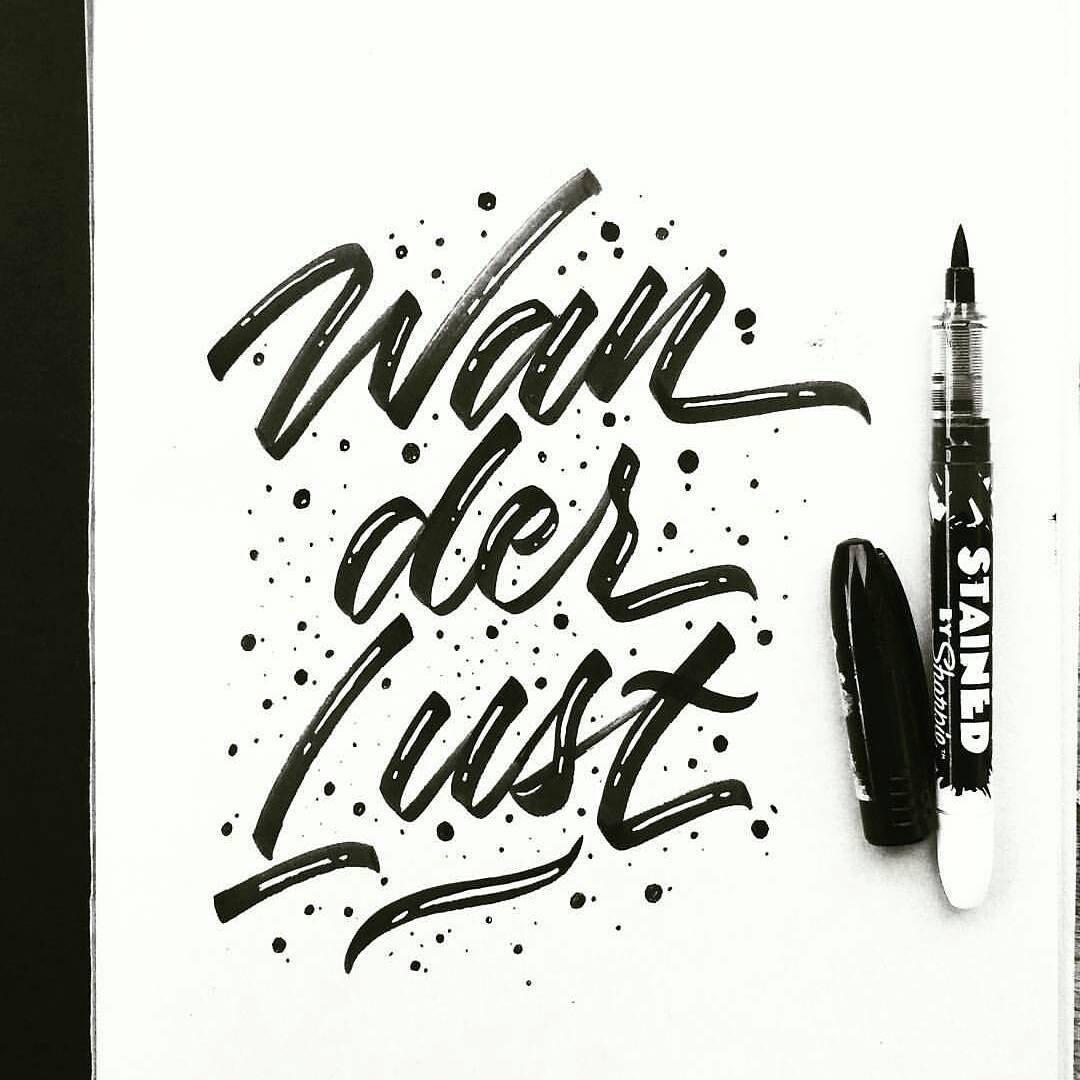 Wan
der
Lust
STAINED
BY Sharpie™